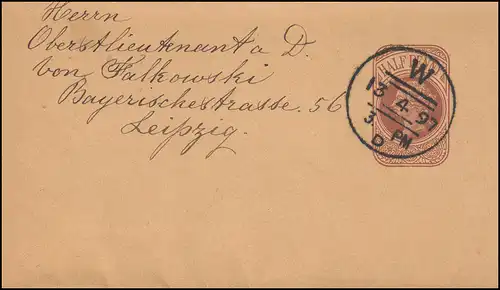 Herrn
Oberstlieutenant a D.
von Falkowski
Bayerischestrasse. 56
Leipzig.
HALF
W
13 4 97
3 PM
D